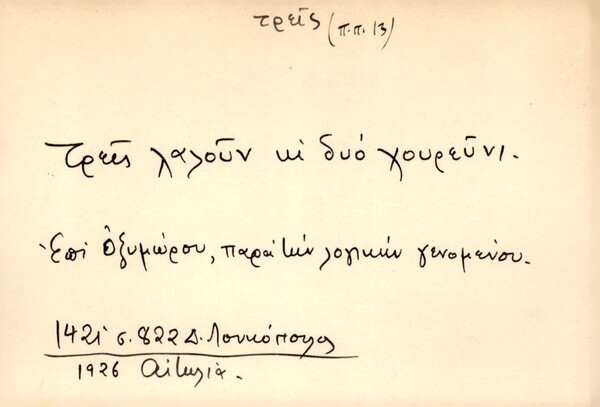 τρεῖς (π.π. 13)
Τρεῖς λαλοῦν κι δυό χουρεῦνι.
Ἐπί ὀξυμώρου, παρά τήν λογικήν γενομένου.
1421 σ. 822 Δ. Λουκόπουλος
1926 Αἰτωλία.